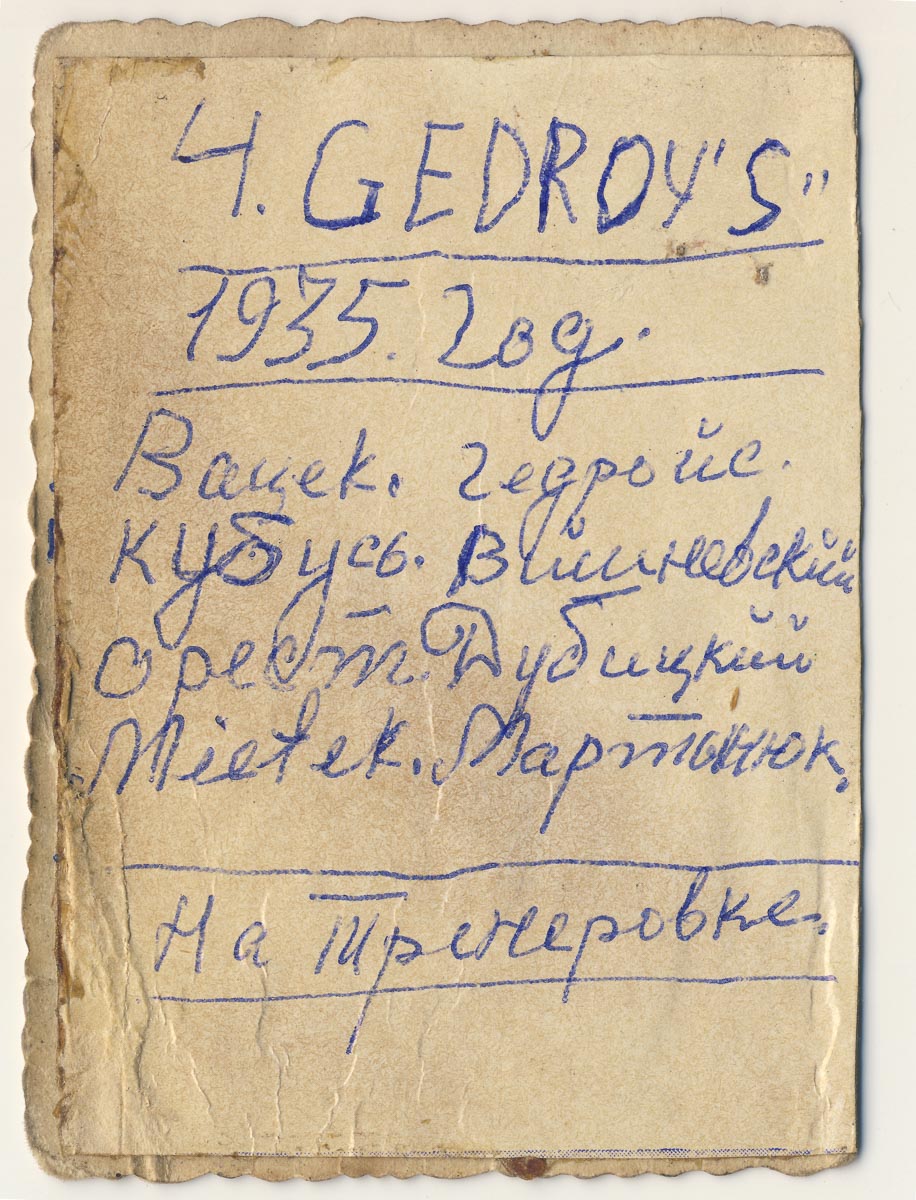 4. GEDROY'S"
1935. Год.
Вацек. Гедройс.
Кубусь. Вишневский
Орест. Дубицкий
Mietek. Мартынюк.
На тренеровке.